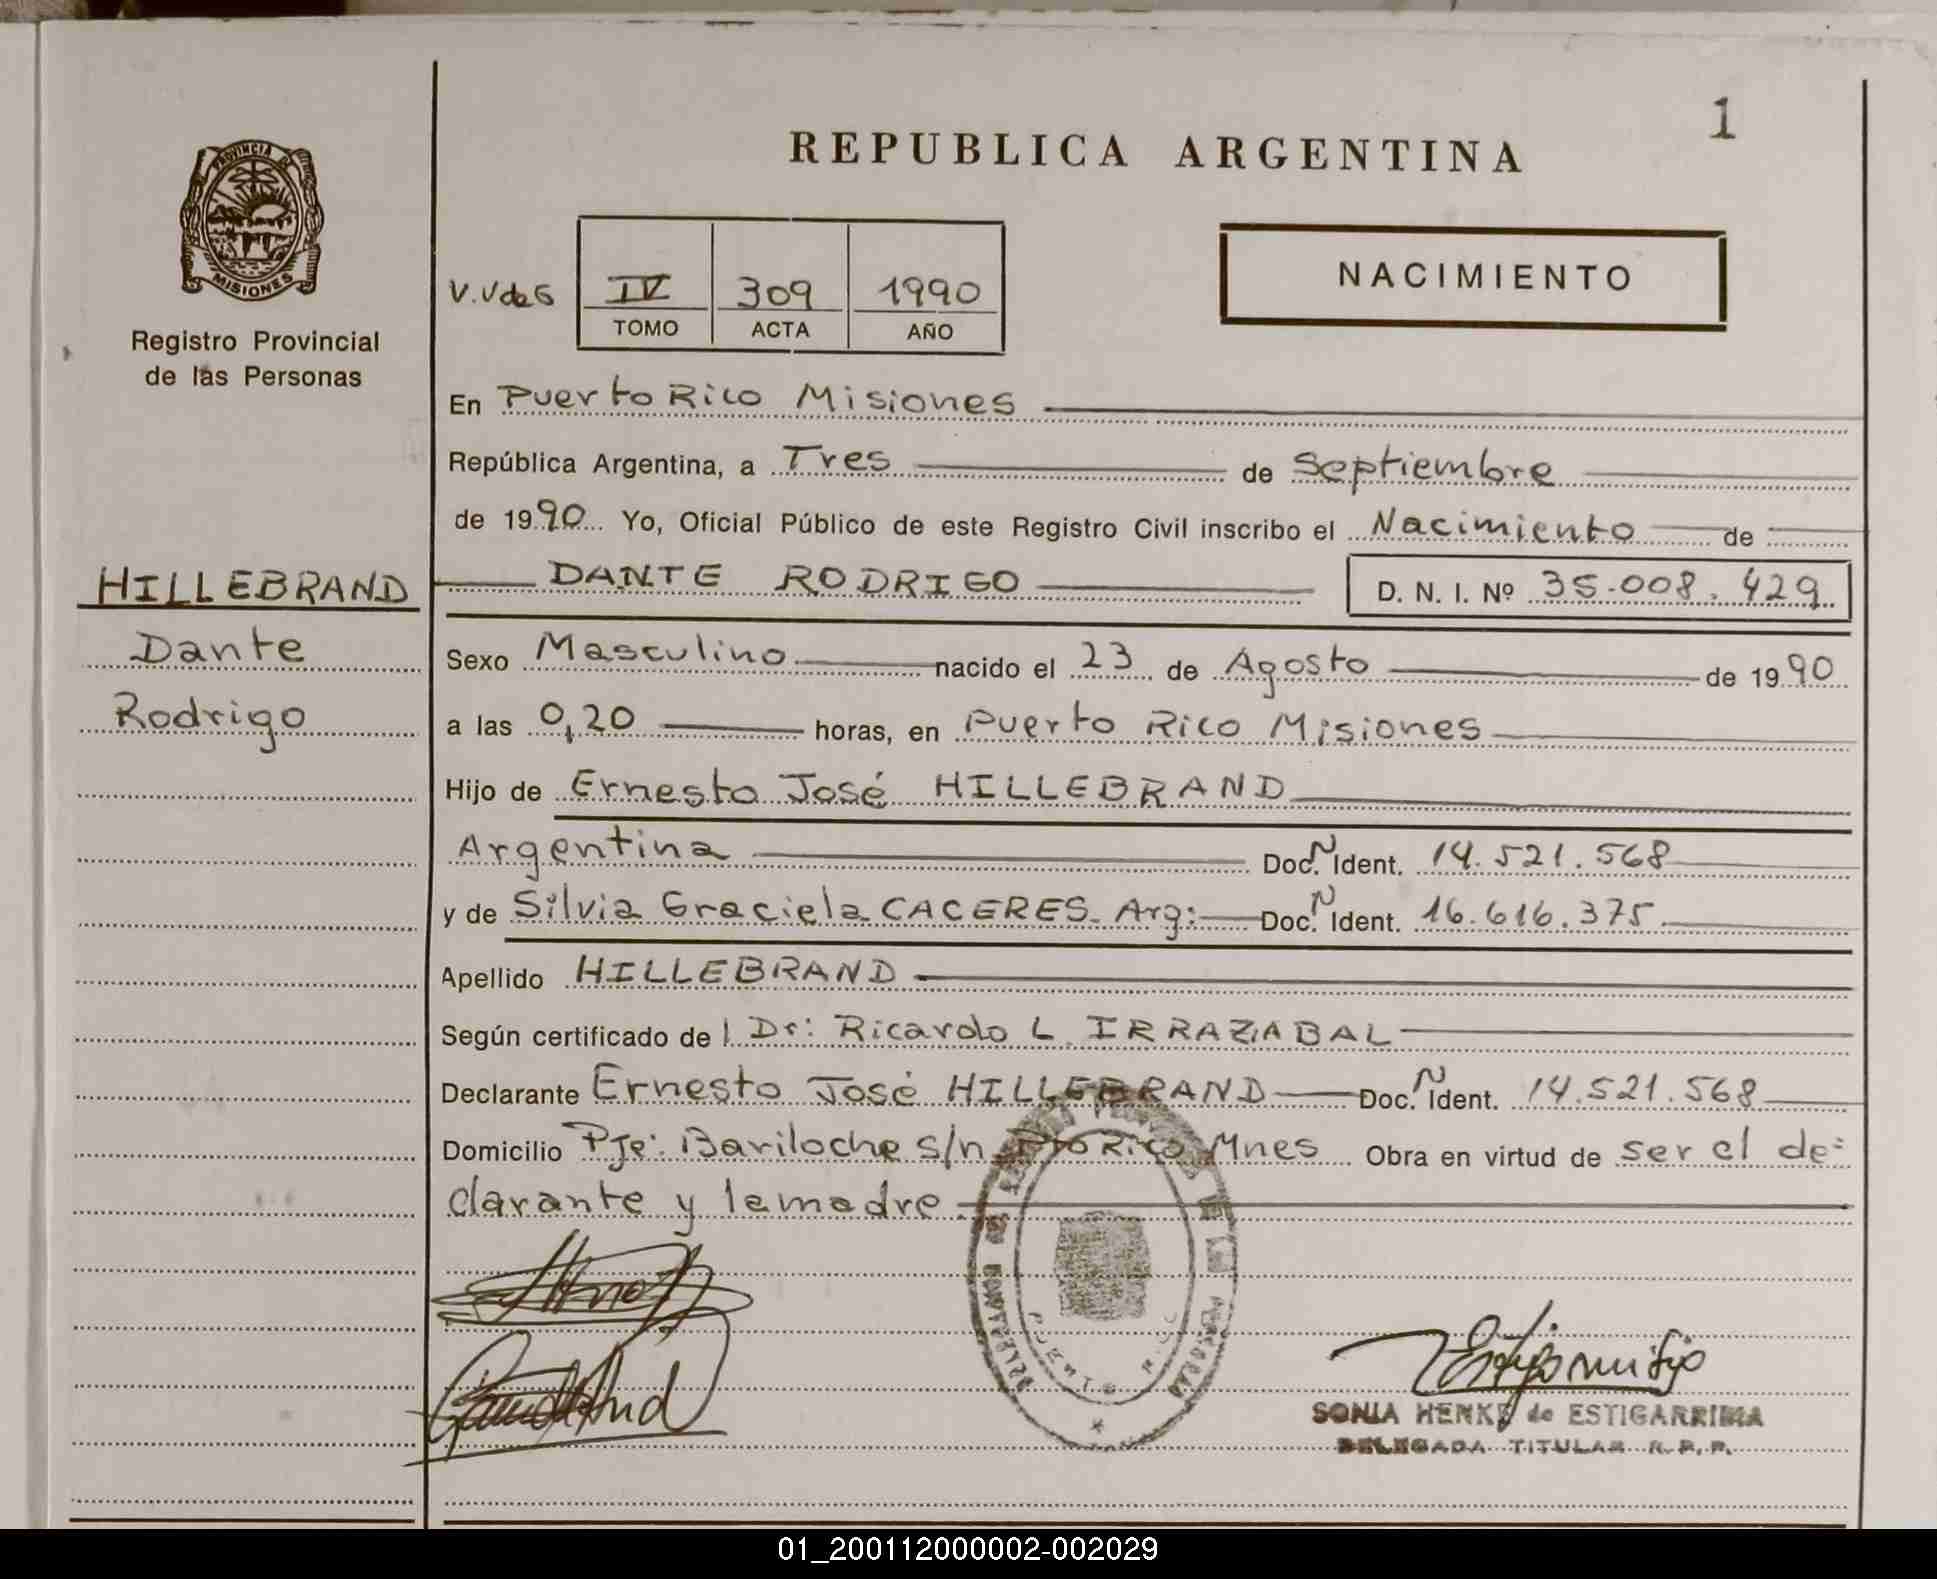 1
REPUBLICA ARGENTINA
PROVINCIA DE
MISIONES
Registro Provincial
de las Personas
V.VdeG
IV 309 1990
TOMO ACTA AÑO
NACIMIENTO
En Puerto Rico Misiones
República Argentina, a Tres de Septiembre
de 1990 Yo, Oficial Público de este Registro Civil inscribo el Nacimiento de
HILLEBRAND
Dante
Rodrigo
DANTE RODRIGO D. N. I. Nº 35.008.429
Sexo Masculino nacido el 23 de Agosto de 1990
a las 0,20 horas, en Puerto Rico Misiones
Hijo de Ernesto José HILLEBRAND
Argentina Doc. N Ident. 14.521.568
y de Silvia Graciela CACERES. Arg: Doc. N Ident. 16.616.375
Apellido HILLEBRAND
Según certificado de l Dr: Ricardo L. IRRAZABAL
Declarante Ernesto José HILLEBRAND Doc. N Ident. 14.521.568
Domicilio Pje: Bariloche s/n Pto Rico Mnes Obra en virtud de ser el de=
clarante y la madre
PUERTO RICO
SONIA HENKE de ESTIGARRIBIA
DELEGADA TITULAR R.P.P.
01_200112000002-002029